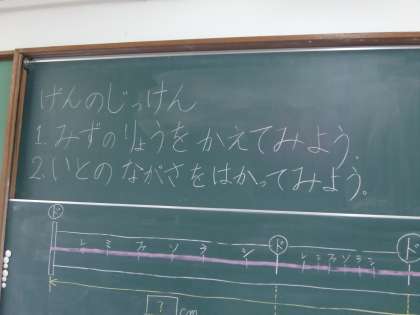 げんのじっけん
1. みずのりょうを かえてみよう.
2. いとの ながさを はかってみよう。
ド レ ミ ファ ソ ラ シ ド レ ミ ファ ソ ラ シ ド
? cm